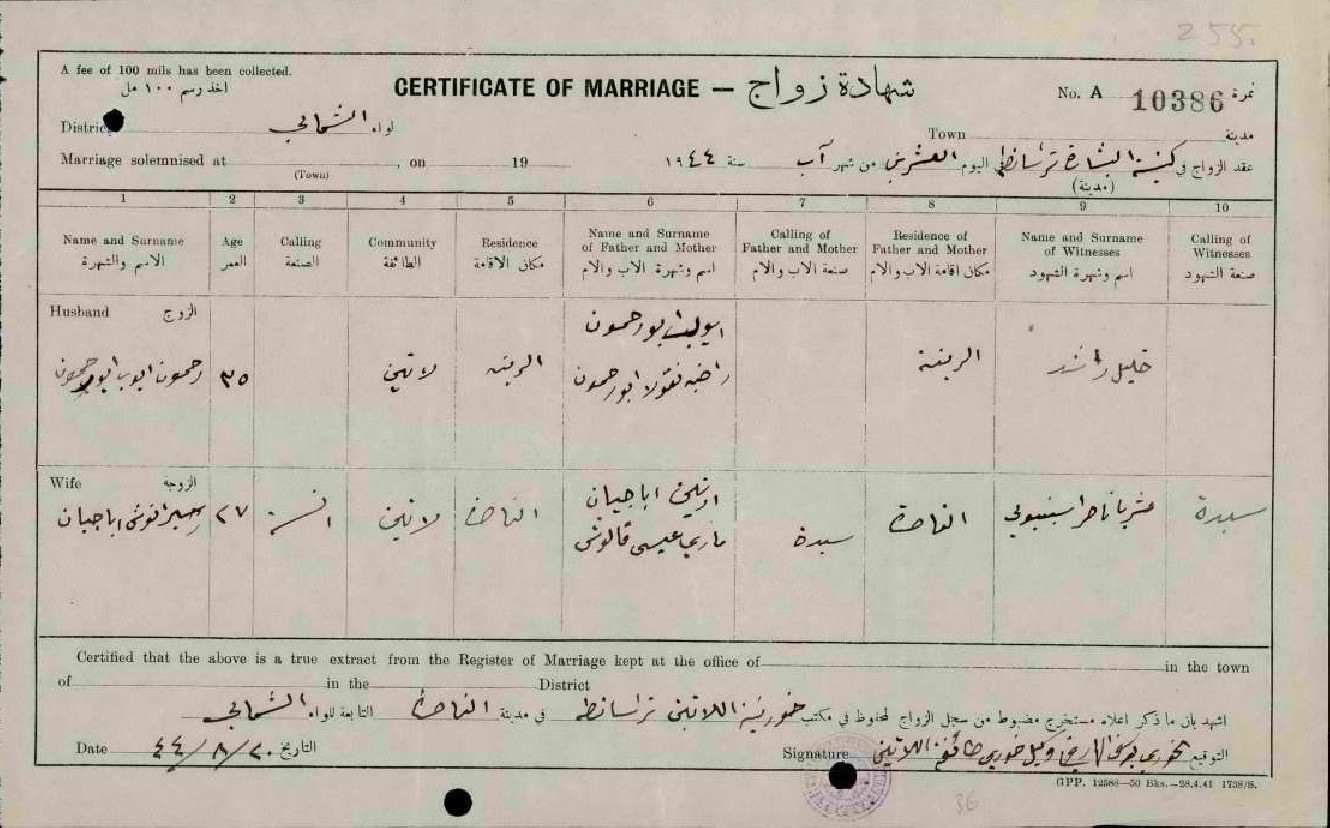 255.
A fee of 100 mils has been collected.
اخذ رسم ١٠٠ مل
CERTIFICATE OF MARRIAGE — شهادة زواج
No. A 10386 نمرة
District الشمالي لواء
Town مدينة
Marriage solemnised at , on 19
(Town)
عقد الزواج في كنيسة البشارة ترسانطه اليوم العشرين من شهر آب سنة ١٩٤٤
(مدينة)
1 2 3 4 5 6 7 8 9 10
Name and Surname الاسم والشهرة
Age العمر
Calling الصنعة
Community الطائفة
Residence مكان الاقامة
Name and Surname of Father and Mother اسم وشهرة الاب والام
Calling of Father and Mother صنعة الاب والام
Residence of Father and Mother مكان اقامة الاب والام
Name and Surname of Witnesses اسم وشهرة الشهود
Calling of Witnesses صنعة الشهود
Husband الزوج
رحمون ايوب ابو رحمون
٣٥
لاتين
الرينه
ايوب ابو رحمون
راضيه نقولا ابو رحمون
الرينة
خليل راشد
Wife الزوجة
اباجيان
٢٧
لاتين
الناصرة
اباجيان
ماري عيسى
سيدة
الناصرة
سيدة
Certified that the above is a true extract from the Register of Marriage kept at the office of in the town
of in the District
اشهد بان ما ذكر اعلاه مستخرج مضبوط من سجل الزواج المحفوظ في مكتب خورنية اللاتين ترسانطه في مدينة الناصرة التابعة للواء الشمالي
Date ٢٠/٨/٤٤ التاريخ
Signature وكيل خوري طائفة اللاتين التوقيع
GPP. 12588—50 Bks.—28.4.41 1738/S.
36